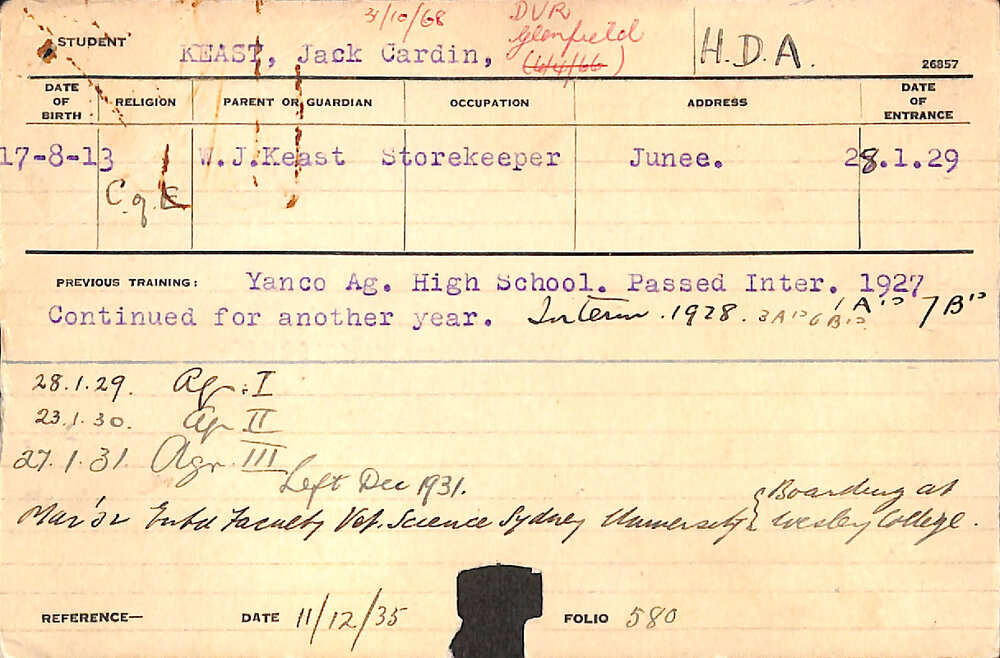 31/10/68 DVR
STUDENT KEAST, Jack Cardin, Glenfield H.D.A.
(4/4/66) 26857
DATE OF BIRTH RELIGION PARENT OR GUARDIAN OCCUPATION ADDRESS DATE OF ENTRANCE
17-8-13 W.J.Keast Storekeeper Junee. 28.1.29
C. of E
PREVIOUS TRAINING: Yanco Ag. High School. Passed Inter. 1927
Continued for another year. Interm. 1928. 3A's 6B's 1A's 7B's
28.1.29. Agr. I
23.1.30. Agr II
27.1.31. Agr. III
Left Dec 1931.
Mar '32 Entd Faculty Vet. Science Sydney University { Boarding at
Wesley College.
REFERENCE— DATE 11/12/35 FOLIO 580